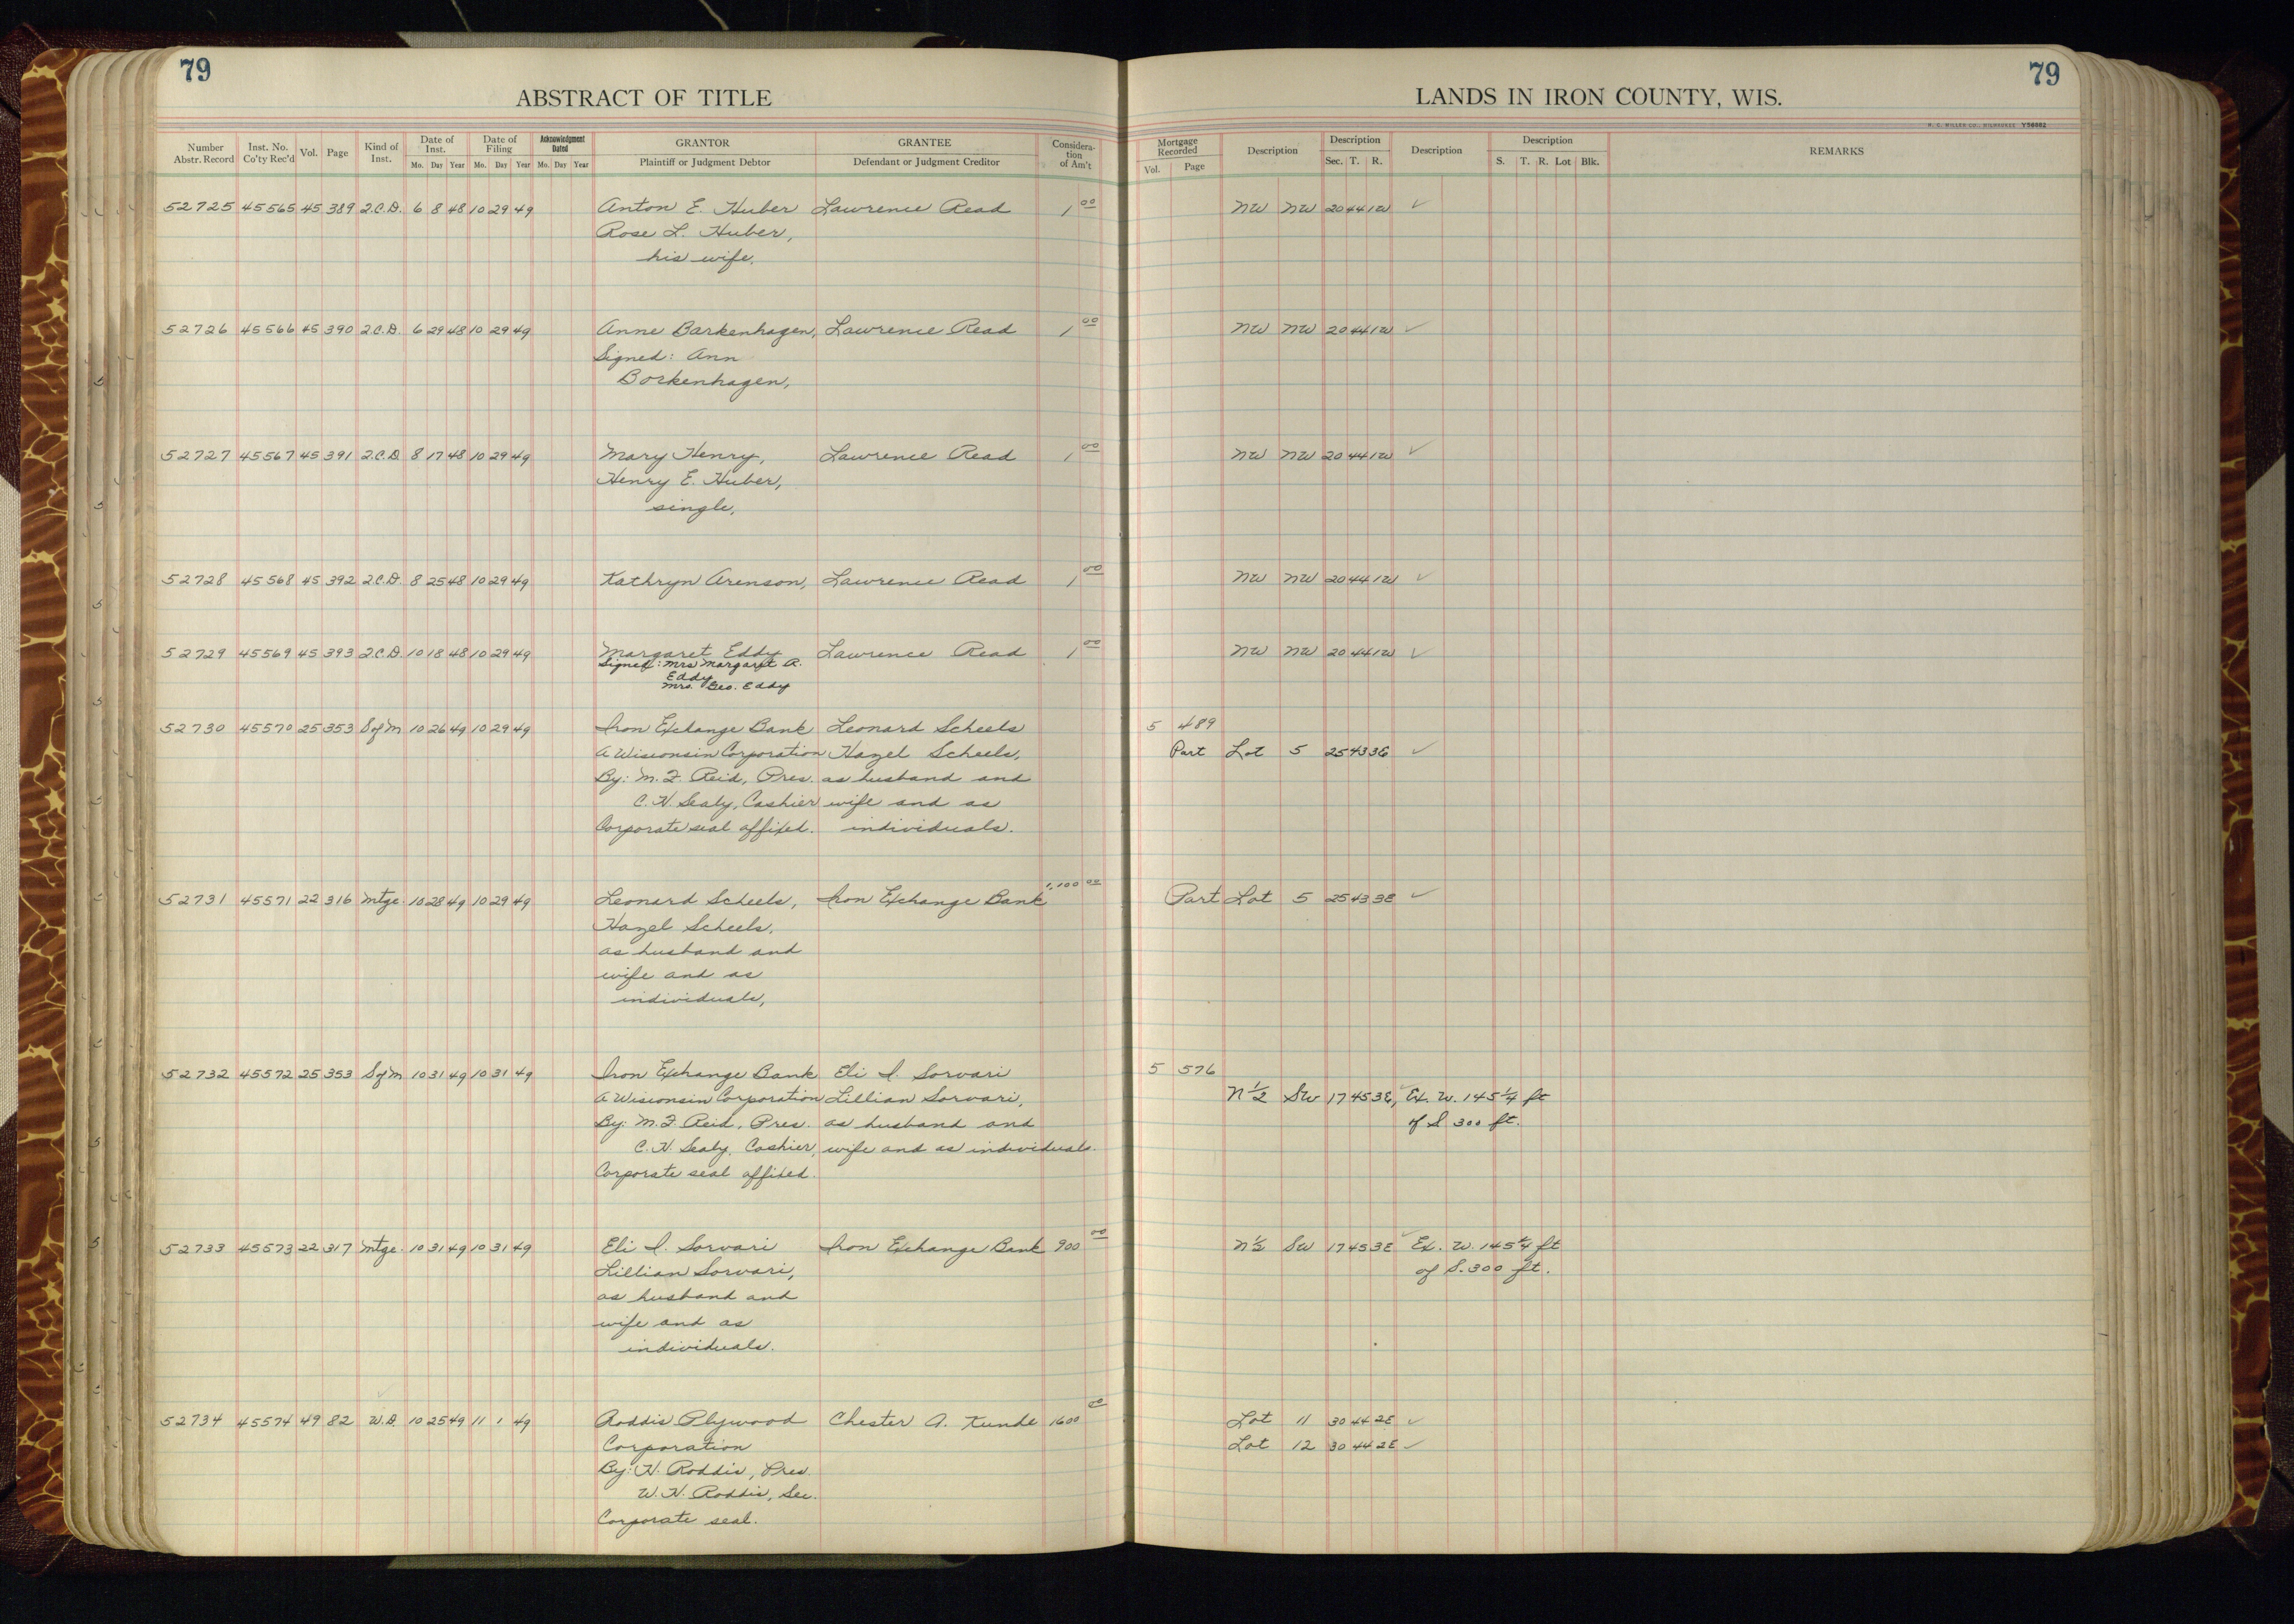 79
79
ABSTRACT OF TITLE
LANDS IN IRON COUNTY, WIS.
Number Abstr. Record Inst. No. Co'ty Rec'd Vol. Page Kind of Inst. Date of Inst. Mo. Day Year Date of Filing Mo. Day Year Acknowledgment Dated Mo. Day Year GRANTOR Plaintiff or Judgment Debtor GRANTEE Defendant or Judgment Creditor Considera-tion of Am't Mortgage Recorded Vol. Page Description Description Sec. T. R. Description Description S. T. R. Lot Blk. REMARKS
52725 45565 45 389 2.C.D. 6 8 48 10 29 49 Anton E. Huber Lawrence Read 1 00 NW NW 20 44 1W ✓
Rose L. Huber,
his wife.
52726 45566 45 390 2.C.D. 6 29 48 10 29 49 Anne Barkenhagen, Lawrence Read 1 00 NW NW 20 44 1W ✓
Signed: Ann
Borkenhagen,
52727 45567 45 391 2.C.D. 8 17 48 10 29 49 Mary Henry, Lawrence Read 1 00 NW NW 20 44 1W ✓
Henry E. Huber,
single,
52728 45568 45 392 2.C.D. 8 25 48 10 29 49 Kathryn Arenson, Lawrence Read 1 00 NW NW 20 44 1W ✓
52729 45569 45 393 2.C.D. 10 18 48 10 29 49 Margaret Eddy Lawrence Read 1 00 NW NW 20 44 1W ✓
Signed: Mrs Margaret A.
Eddy
Mrs. Geo. Eddy
52730 45570 25 353 S of M 10 26 49 10 29 49 Iron Exchange Bank Leonard Scheels 5 489
A Wisconsin Corporation Hazel Scheels, Part Lot 5 25 43 3E ✓
By: M. F. Reid, Pres. as husband and
C. H. Sealy, Cashier wife and as
Corporate seal affixed. individuals.
52731 45571 22 316 Mtge. 10 28 49 10 29 49 Leonard Scheels, Iron Exchange Bank 1,100 00 Part Lot 5 25 43 3E ✓
Hazel Scheels,
as husband and
wife and as
individuals,
52732 45572 25 353 S of M 10 31 49 10 31 49 Iron Exchange Bank Eli I. Sorvari 5 576
A Wisconsin Corporation Lillian Sorvari, N 1/2 SW 17 45 3E, ✓ Ex. W. 145 1/4 ft
By: M. F. Reid, Pres. as husband and of S 300 ft.
C. H. Sealy, Cashier, wife and as individuals.
Corporate seal affixed.
52733 45573 22 317 Mtge. 10 31 49 10 31 49 Eli I. Sorvari Iron Exchange Bank 900 00 N 1/2 SW 17 45 3E ✓ Ex. W. 145 1/4 ft
Lillian Sorvari, of S. 300 ft.
as husband and
wife and as
individuals.
52734 45574 49 82 W.D. 10 25 49 11 1 49 Roddis Plywood Chester A. Kunde 1600 00 Lot 11 30 44 2E ✓
Corporation Lot 12 30 44 2E ✓
By: H. Roddis, Pres.
W. H. Roddis, Sec.
Corporate seal.